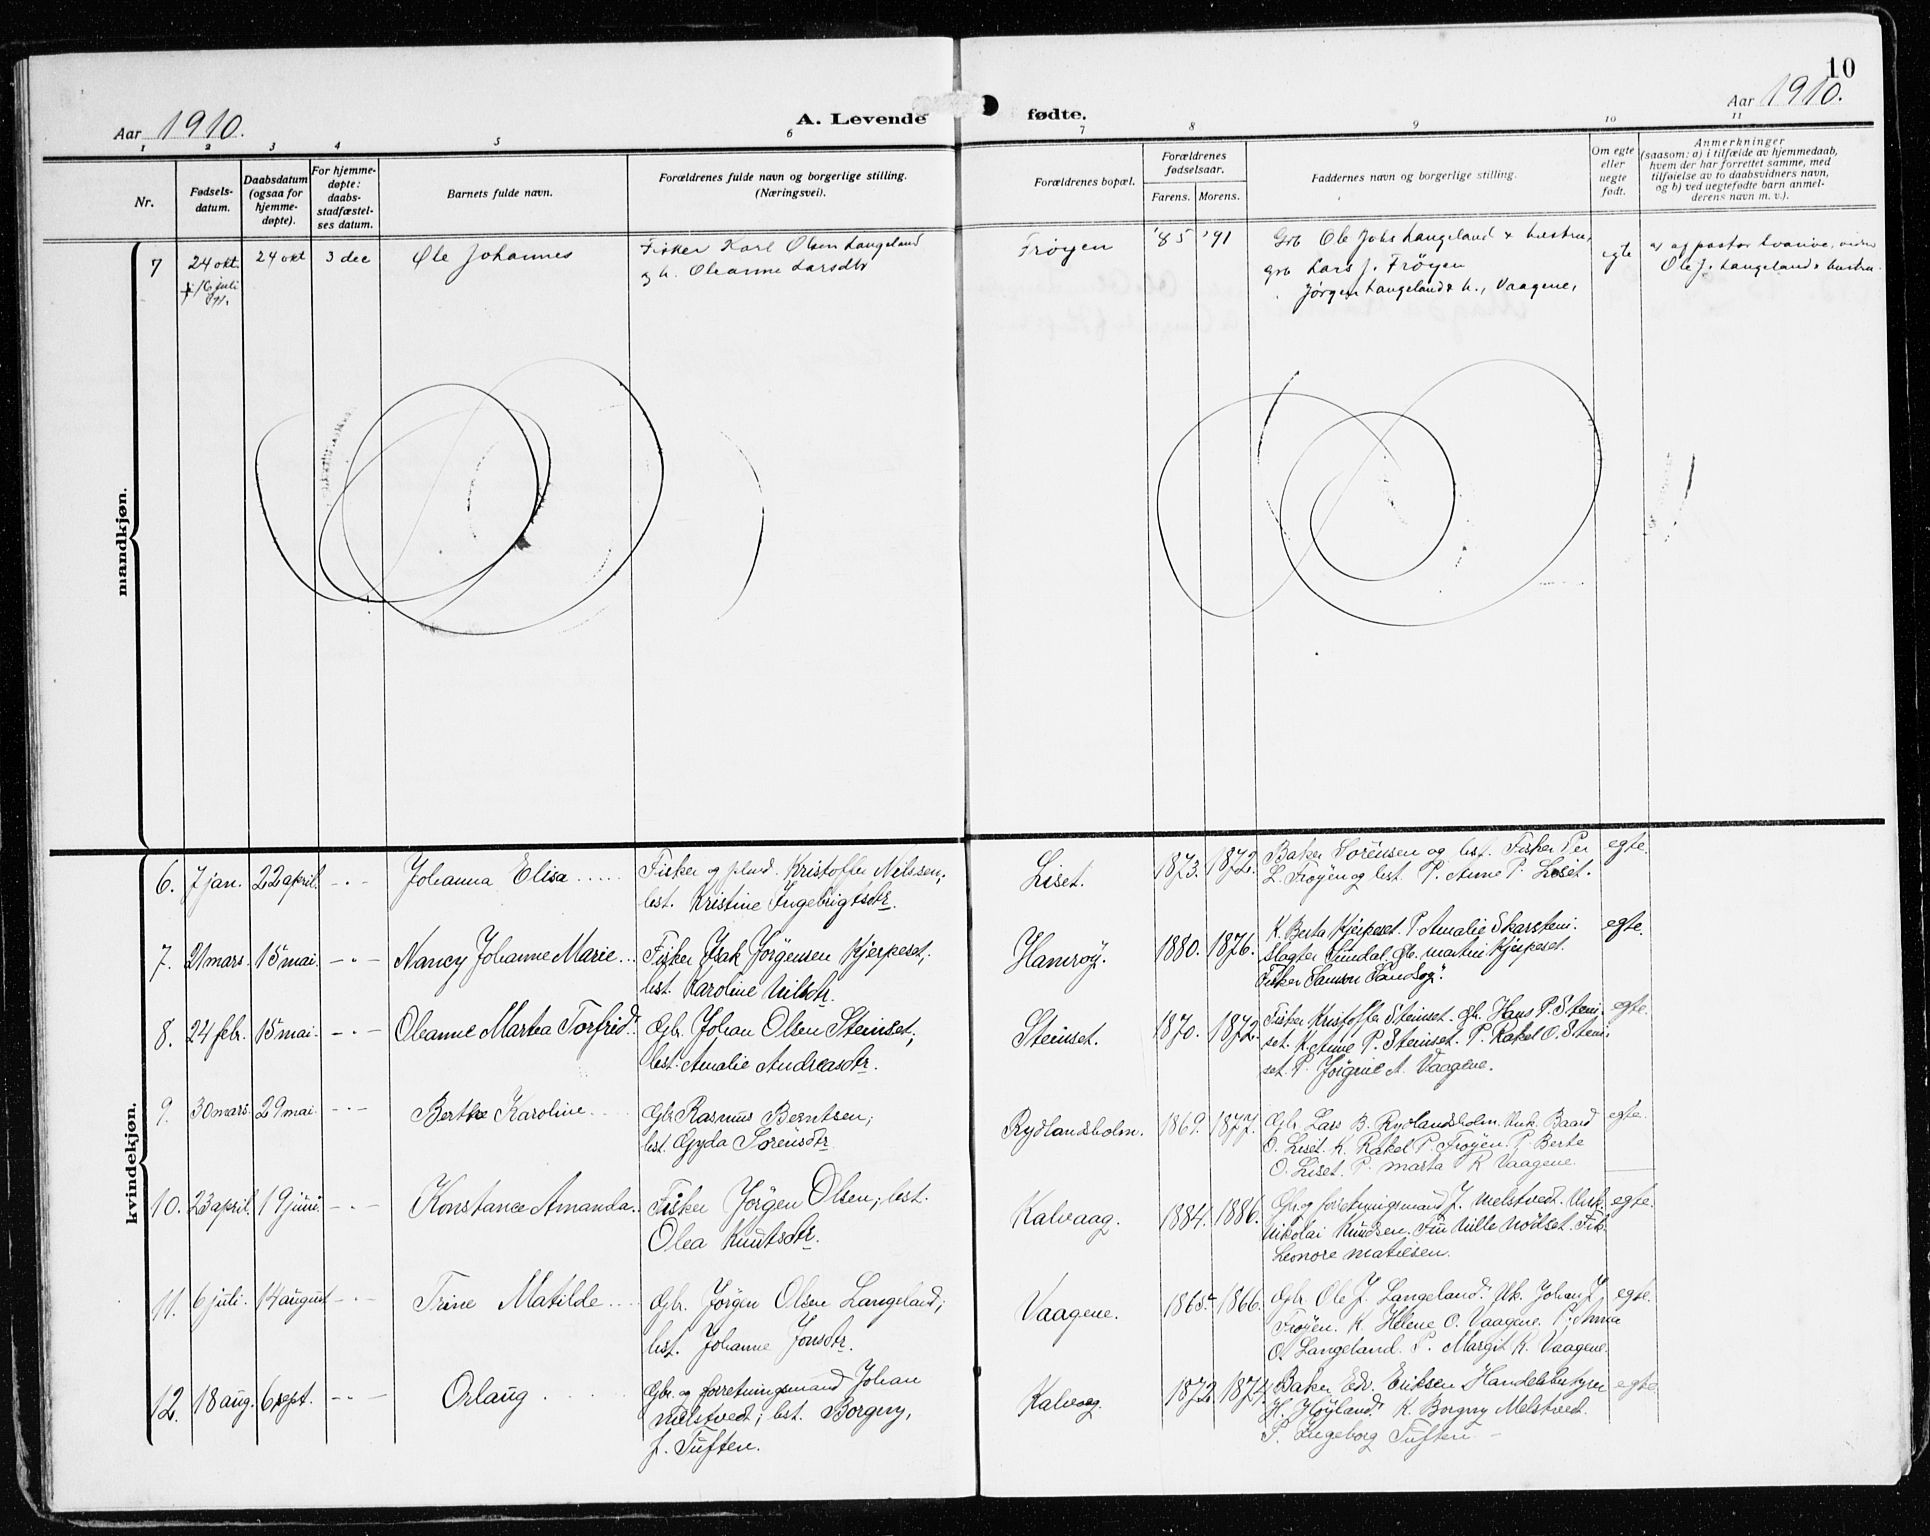 10
Aar 1910.
A. Levende fødte.
Aar 1910.
1 2 3 4 5 6 7 8 9 10 11
Nr.
Fødsels-
datum.
Daabsdatum
(ogsaa for
hjemme-
døpte).
For hjemme-
døpte:
daabs-
stadfæstel-
ses datum.
Barnets fulde navn.
Forældrenes fulde navn og borgerlige stilling.
(Næringsvei).
Forældrenes bopæl.
Forældrenes
fødselsaar.
Farens. Morens.
Faddernes navn og borgerlige stilling.
Om egte
eller
uegte
født.
Anmerkninger
(saasom: a) i tilfælde av hjemmedaab,
hvem der har forrettet samme, med
tilføielse av to daabsvidners navn,
og b) ved uegtefødte barn anmel-
derens navn m. v.).
mandkjøn.
7 24 okt. 24 okt 3 dec Ole Johannes
† 16 juli
Fisker Karl Olsen Langeland
og h. Oleanne Larsdtr
Frøyen '85 '91
Grb Ole Johs Langeland & hustru,
Grb Lars J. Frøyen
Jørgen Langeland & h., Vaagene,
egte
Ole J. Langeland & hustru.
kvindekjøn.
6. 7 jan. 22 april. - " - Johanna Elisa .....
Fisker og Kristoffer Nilssen;
hst. Kristine Ingebrigtsdtr.
Liset. 1873. 1872.
Baker Sørensen og hst. Fisker Per
L. Frøyen og hst. P. Anne P. Liset.
egte.
7. 21 mars. 15 mai. - " - Nancy Johanne Marie...
Fisker Isak Jørgensen Hjerpeset;
hst. Karoline Nilsdtr.
Hamrøy. 1880. 1876.
K. Berta Hjerpeset. P. Amalie Skarstein.
Slagter Sundal. Gb. Martin Hjerpeset.
Fisker Samson Sandøy.
egte.
8. 24 febr. 15 mai. - " - Oleanne Martha Torfrid.
Gbr. Johan Olsen Steinset;
hst. Amalie Andreasdtr.
Steinset. 1870. 1872.
Fisker Kristoffer Steinset. Gb. Hans P. Stein-
set. K. Anne P. Steinset. P. Rakel O. Stein-
set. P. Jørgine A. Vaagene.
egte.
9. 30 mars. 29 mai. - " - Berthe Karoline ....
Gbr Rasmus Berntsen;
hst. Gyda Sørensdtr.
Rydlandsholm. 1869. 1877.
Gbr. Lars B. Rydlandsholm. Unk. Baard
O. Liset. K. Rakel P. Frøyen. P. Berte
O. Liset. P. Marta R. Vaagene.
egte.
10. 23 april. 19 juni. - " - Konstance Amanda..
Fisker Jørgen Olsen; hst.
Olea Knutsdtr.
Kalvaag. 1884. 1886.
Gbr. og forretningsmand J. Melstvedt. Unk.
Nikolai Knudsen. Nødset.
Leonore Matiesen.
egte.
11. 6 juli. 14 august - " - Trine Matilde ...
Gbr. Jørgen Olsen Langeland;
hst. Johanne Jonsdtr.
Vaagene. 1865 1866.
Gbr. Ole J. Langeland. Unk. Johan J.
Frøyen. K. Helene O. Vaagene. P. Anna
O. Langeland. P. Margit K. Vaagene.
egte.
12. 18 aug. 6 sept. - " - Orlaug .....
Gbr. og forretningsmand Johan
Melstvedt; hst. Borgny,
f. Tuften.
Kalvaag. 1872. 1874.
Baker Edv. Eriksen Handelsbestyrer
H. Høyland. K. Borgny Melstvedt.
P. Ingeborg Tuften. -
egte.